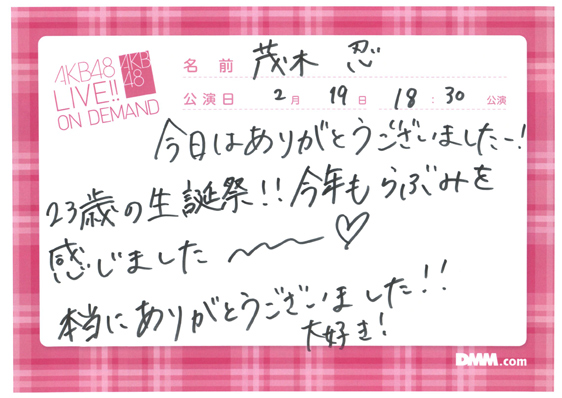 AKB48
LIVE!!
ON DEMAND
AKB
48
名前 茂木 忍
公演日 2月 19日 18:30 公演
今日はありがとうございましたー!
23歳の生誕祭!!今年もらぶみを
感じました〜〜♡
本当にありがとうございました!!
大好き!
DMM.com